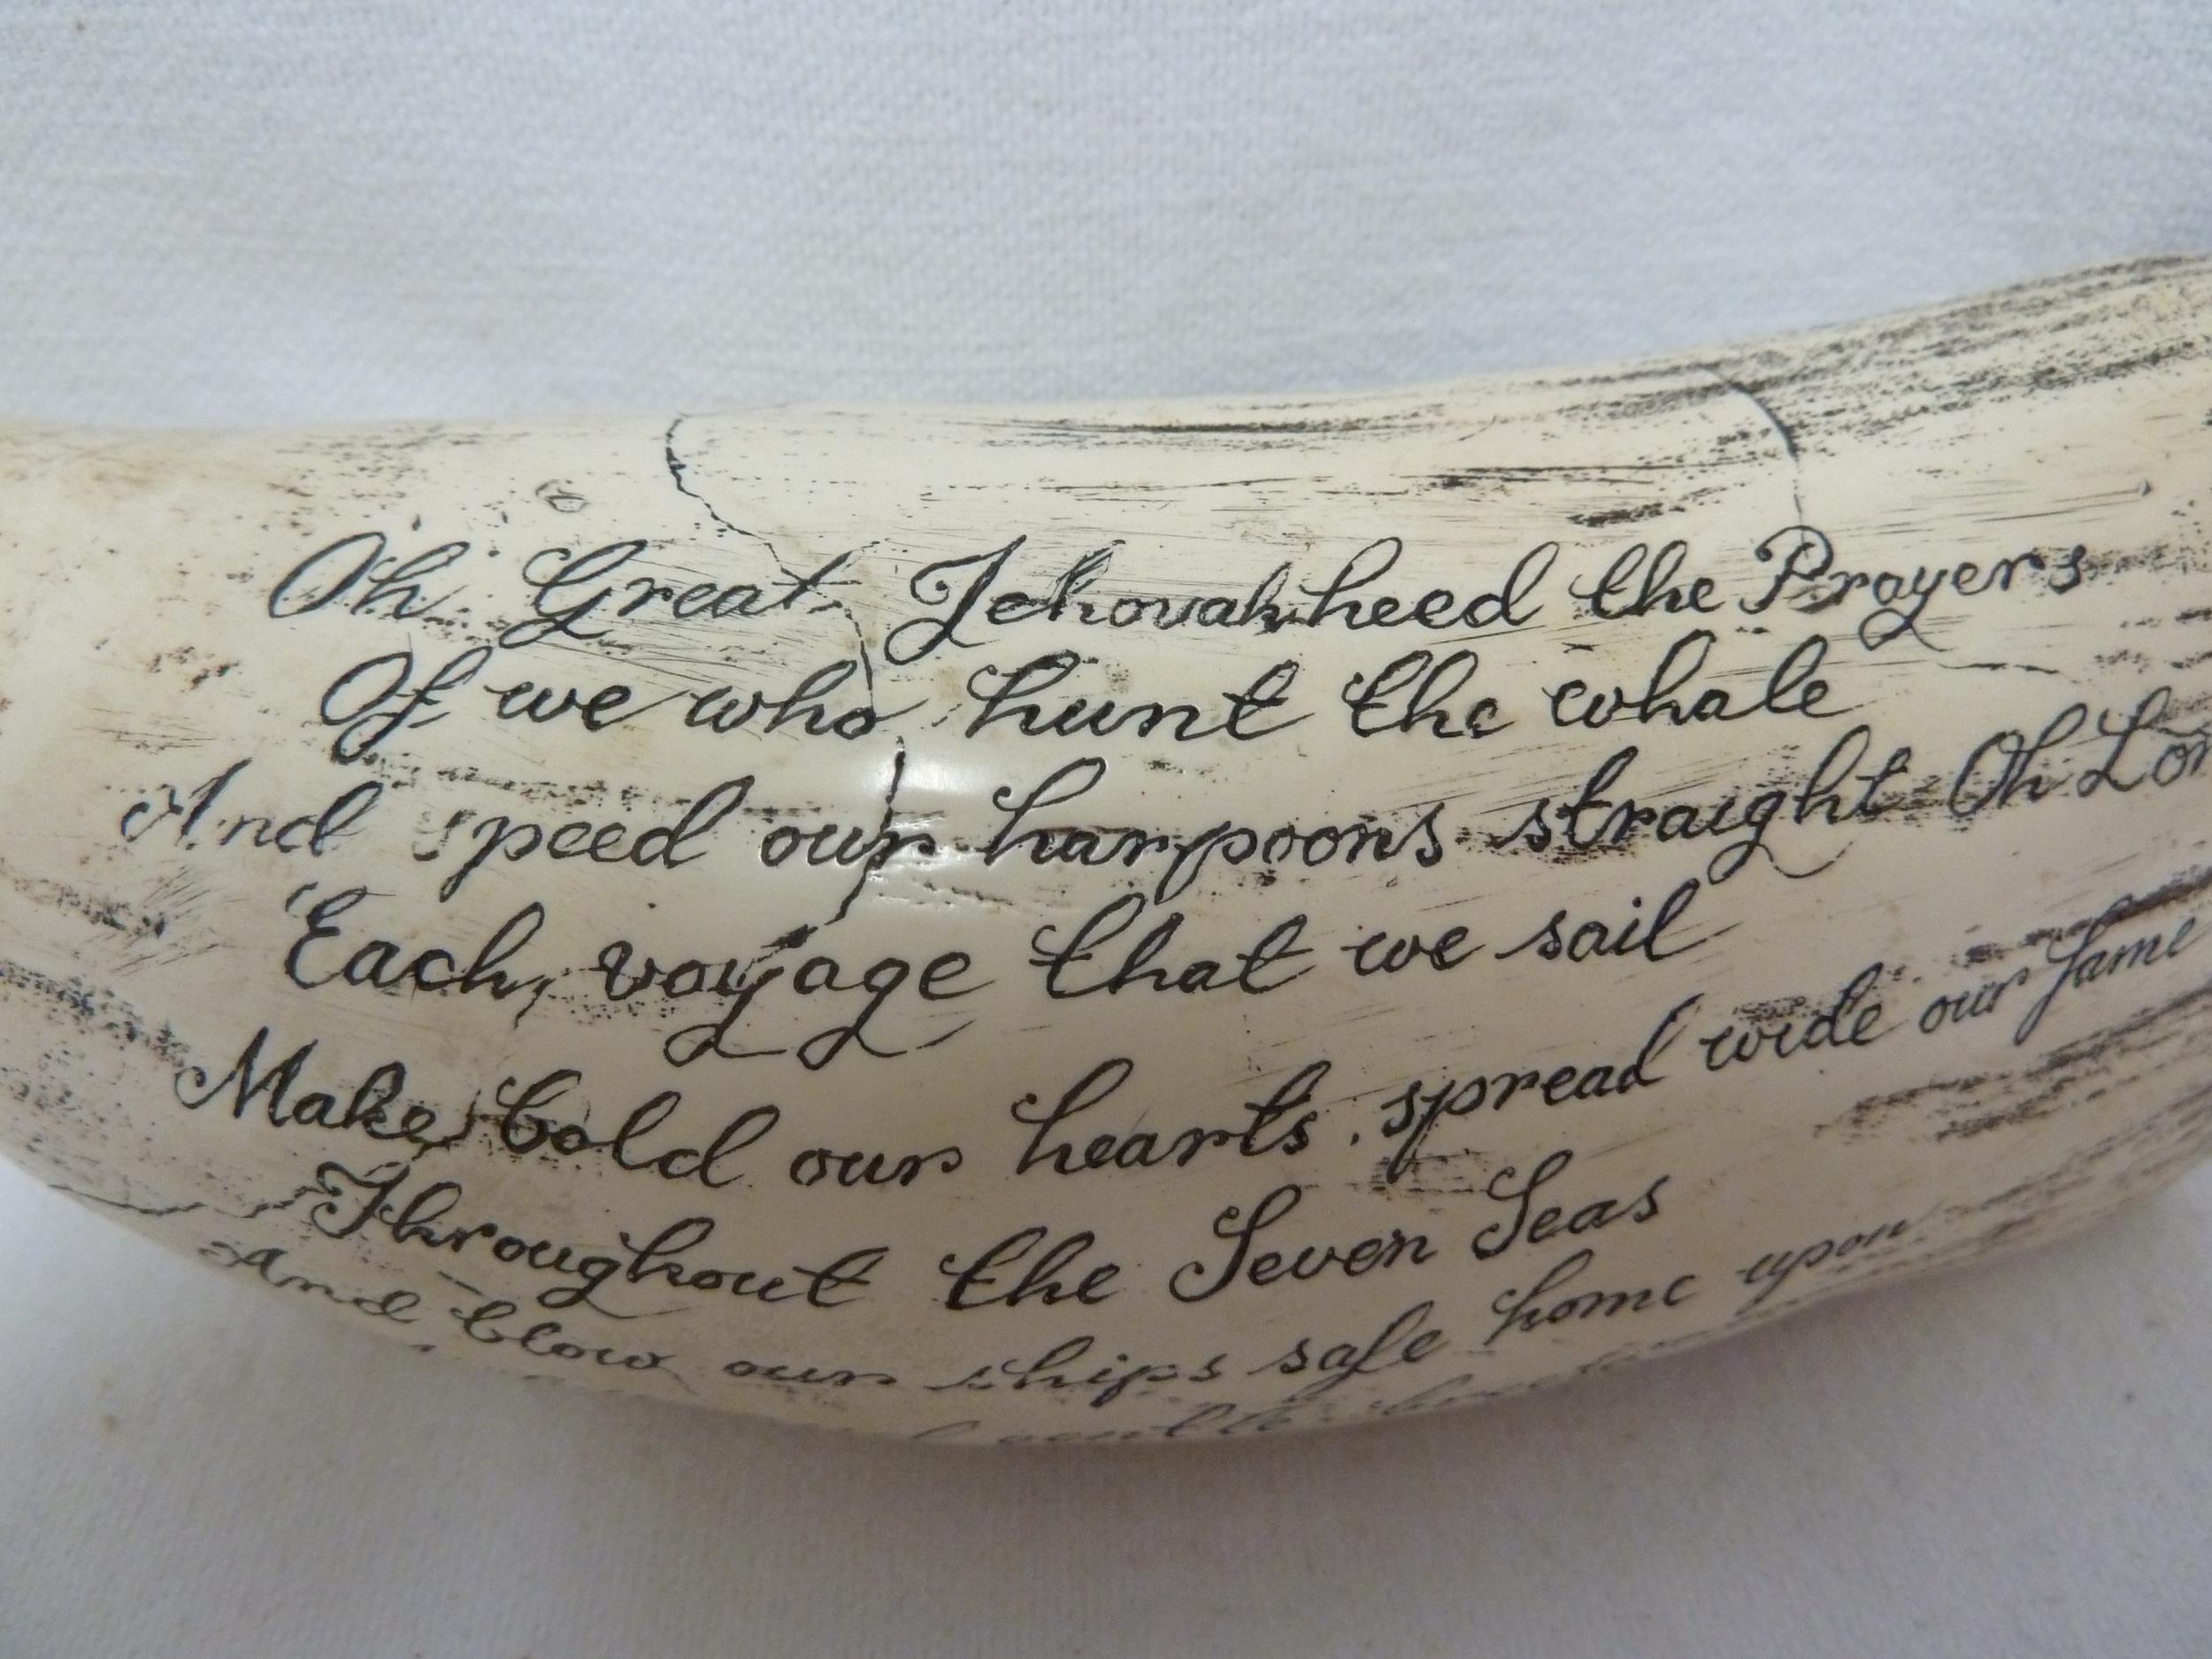 Oh Great Jehovah heed the Prayers
Of we who hunt the whale
And speed our harpoons straight Oh Lor
Each voyage that we sail
Make bold our hearts, spread wide our fame
Throughout the Seven Seas
And blow our ships safe home upon